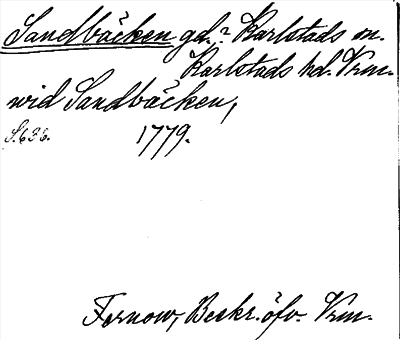 Sandbäcken gd.? Karlstads sn.
Karlstads hd. Vrm.
wid Sandbäcken,
S.636. 1779.
Fernow, Beskr. öfv. Vrm.